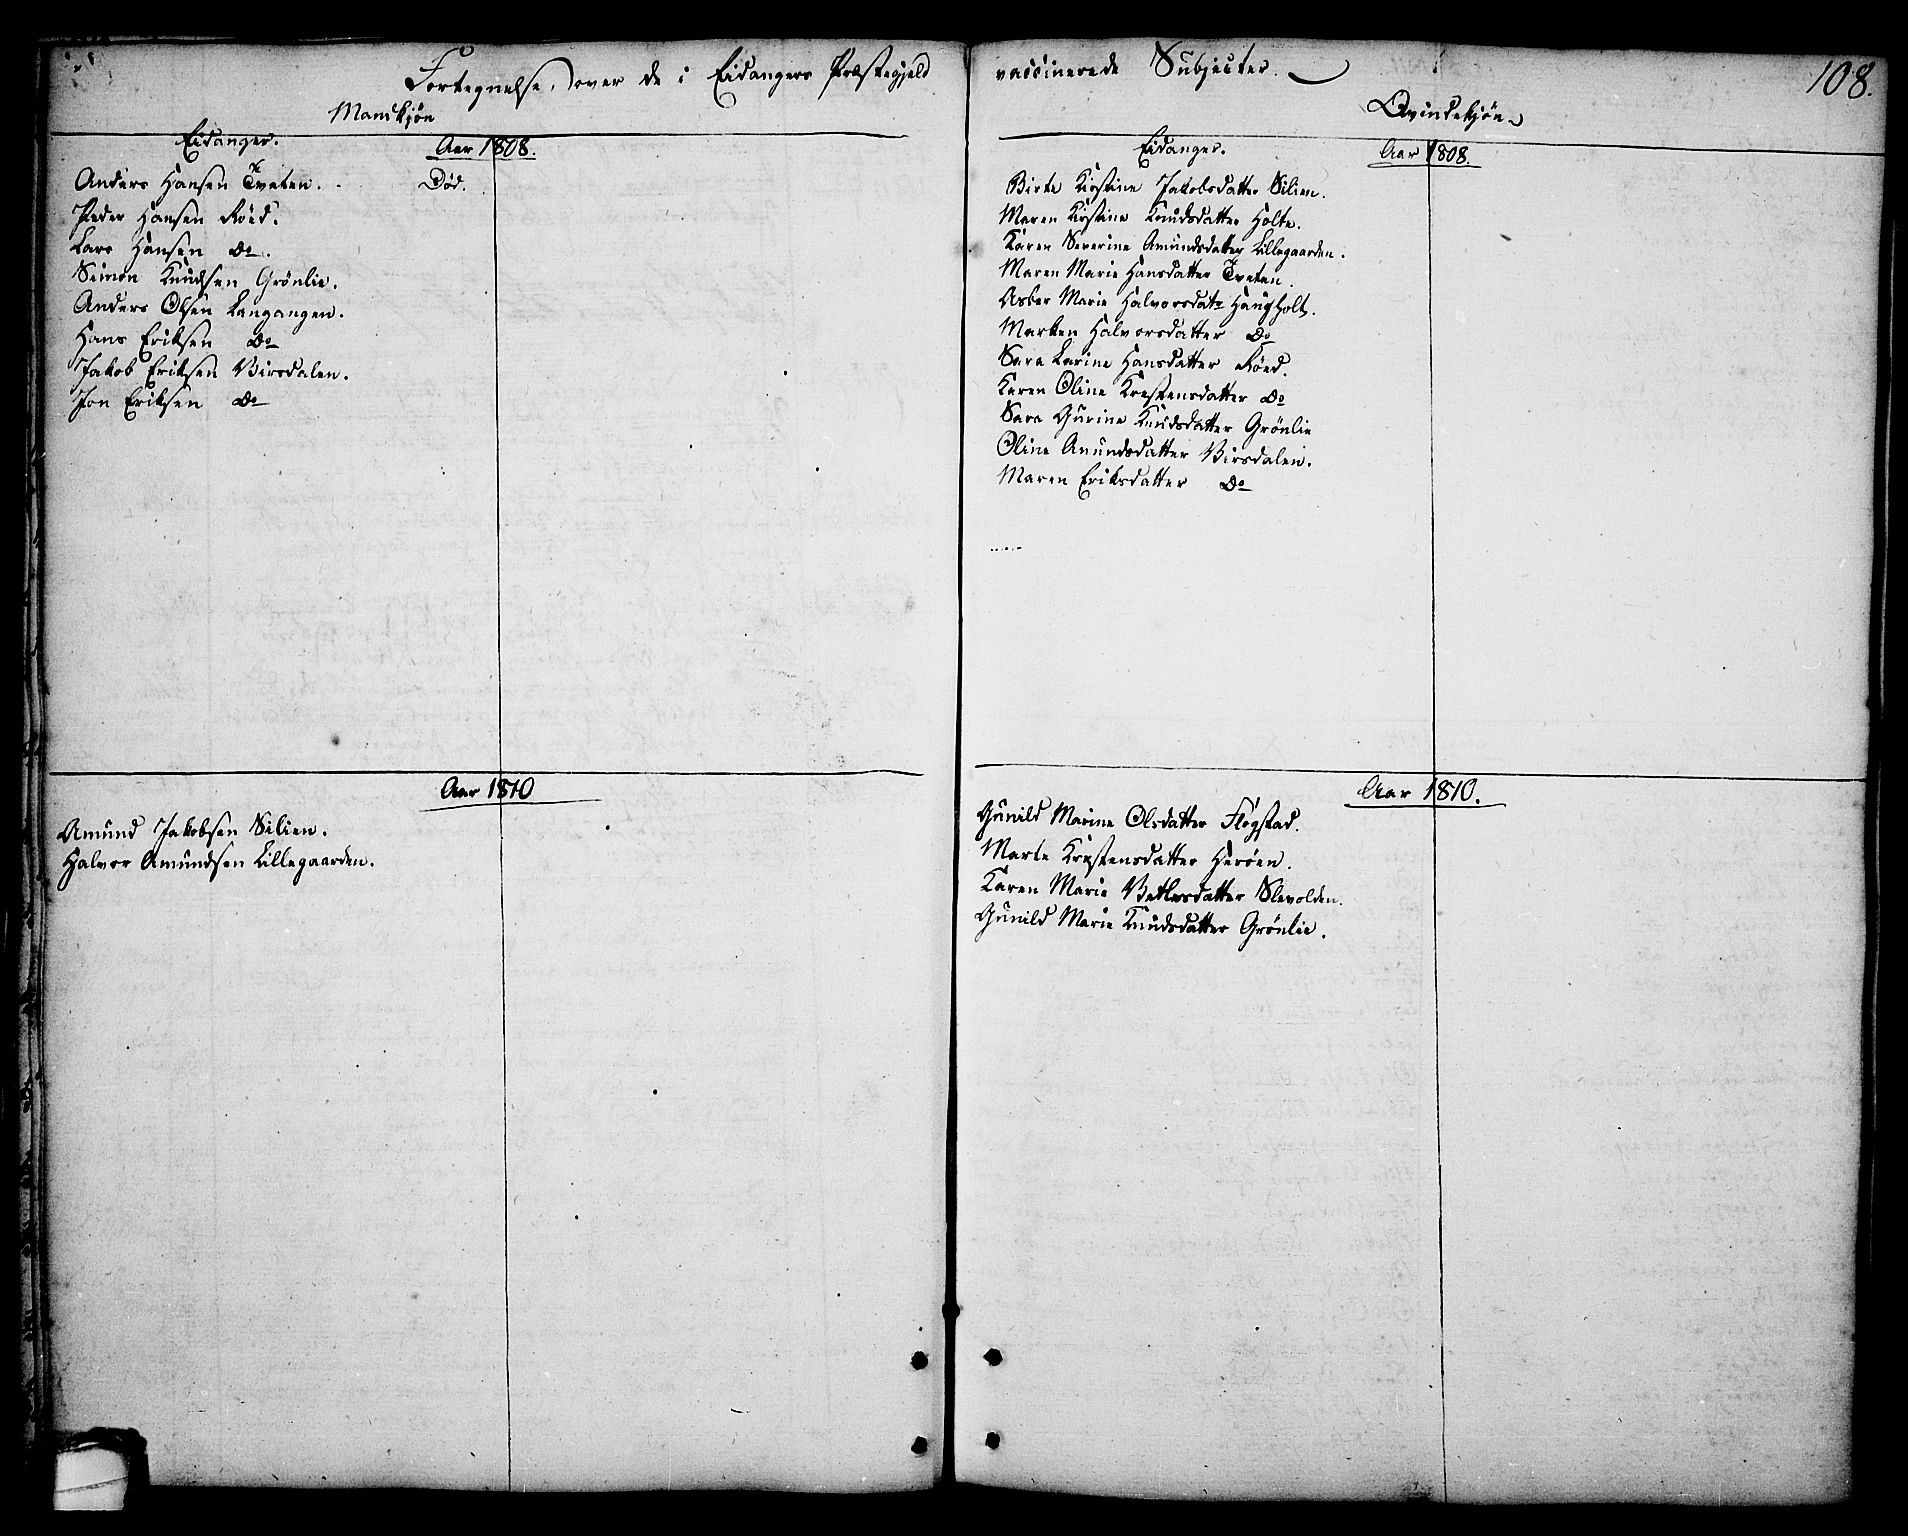 Fortegnelse, over de i Eidangers Præstegjeld
Mandkjøn
Eidanger.
Aar 1808.
Anders Hansen Tveten. Død.
Peder Hansen Röed.
Lars Hansen Do.
Simon Knudsen Grönlie.
Anders Olsen Langangen.
Hans Eriksen Do
Jakob Eriksen Virsdalen.
Jon Eriksen Do
Aar 1810
Amund Jakobsen Silien.
Halvor Amundsen Lillegaarden.
vaccinerede Subjecter.
108.
Qvindekjøn
Eidanger.
Aar 1808.
Birte Kirstine Jakobsdatter Silien.
Maren Kirstine Knudsdatter Holte.
Karen Severine Amundsdatter Lillegaarden.
Maren Marie Hansdatter Tveten.
Asber Marie Halvorsdatr Haugholt.
Marken Halvorsdatter Do
Sara Larine Hansdatter Röed.
Karen Oline Krestensdatter Do
Sara Gurine Knudsdatter Grönlie
Oline Amundsdatter Virsdalen.
Maren Eriksdatter Do
Aar 1810.
Gunild Marine Olsdatter Fløgstad.
Marte Krestensdatter Heröen.
Karen Marie Vetlesdatter Slevolden.
Gunild Marie Knudsdatter Grönlie.